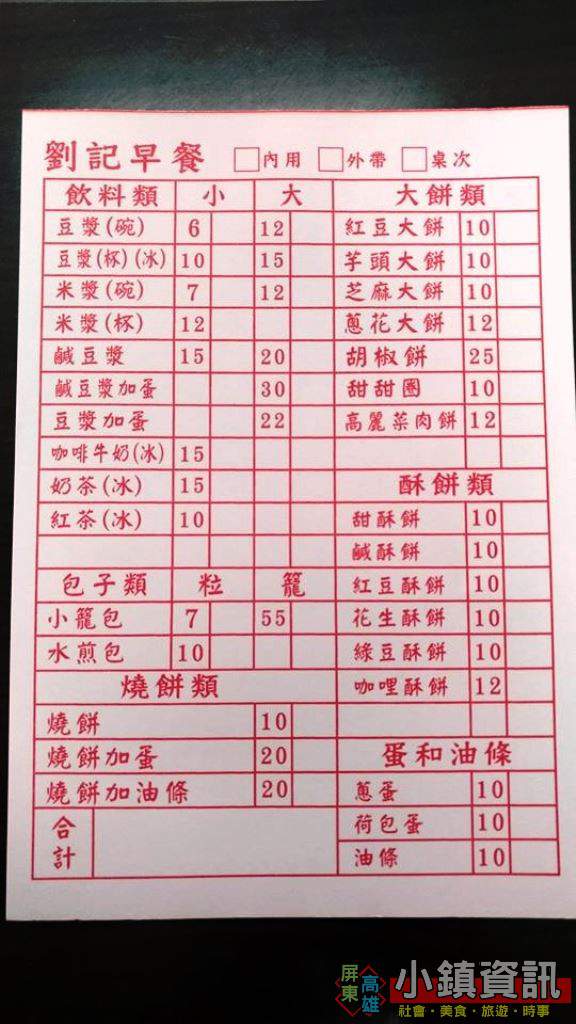 劉記早餐 □內用 □外帶 □桌次
飲料類 小 大
豆漿(碗) 6 12
豆漿(杯)(冰) 10 15
米漿(碗) 7 12
米漿(杯) 12
鹹豆漿 15 20
鹹豆漿加蛋 30
豆漿加蛋 22
咖啡牛奶(冰) 15
奶茶(冰) 15
紅茶(冰) 10
包子類 粒 籠
小籠包 7 55
水煎包 10
燒餅類
燒餅 10
燒餅加蛋 20
燒餅加油條 20
合計
大餅類
紅豆大餅 10
芋頭大餅 10
芝麻大餅 10
蔥花大餅 12
胡椒餅 25
甜甜圈 10
高麗菜肉餅 12
酥餅類
甜酥餅 10
鹹酥餅 10
紅豆酥餅 10
花生酥餅 10
綠豆酥餅 10
咖哩酥餅 12
蛋和油條
蔥蛋 10
荷包蛋 10
油條 10
屏東 高雄 小鎮資訊
社會・美食・旅遊・時事